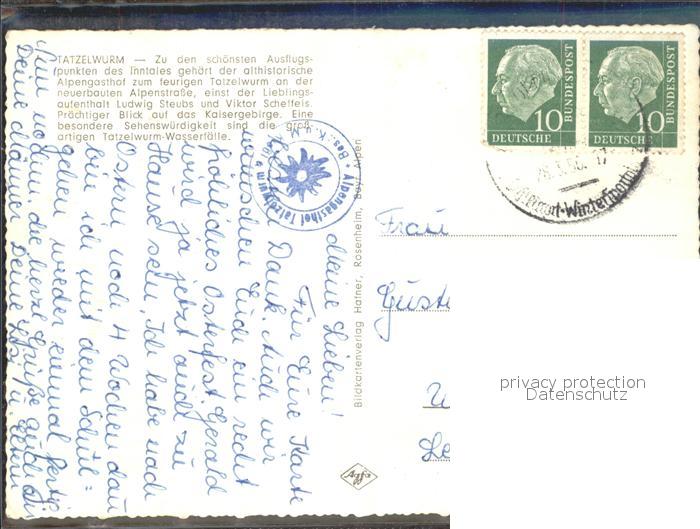 TATZELWURM — Zu den schönsten Ausflugs-
punkten des Inntales gehört der althistorische
Alpengasthof zum feurigen Tatzelwurm an der
neuerbauten Alpenstraße, einst der Lieblings-
aufenthalt Ludwig Steubs und Viktor Scheffels.
Prächtiger Blick auf das Kaisergebirge. Eine
besondere Sehenswürdigkeit sind die groß-
artigen Tatzelwurm-Wasserfälle.
Alpengasthof Tatzelwurm
Meine Lieben!
Für Eure Karte
herzl. Dank. Auch wir
wünschen Euch ein recht
fröhliches Osterfest. Gerald
wird ja jetzt auch zu
Hause sein. Ich habe nach
Ostern noch 4 Wochen dann
bin ich mit dem Schul=
gehen wieder einmal fertig.
Nun noch die herzl. Grüße auch an
Deine Männer Deine
Bildkartenverlag Hafner, Rosenheim, Bay. Alpen
Agfa
10
DEUTSCHE
BUNDESPOST
10
DEUTSCHE
BUNDESPOST
Frau
privacy protection
Datenschutz